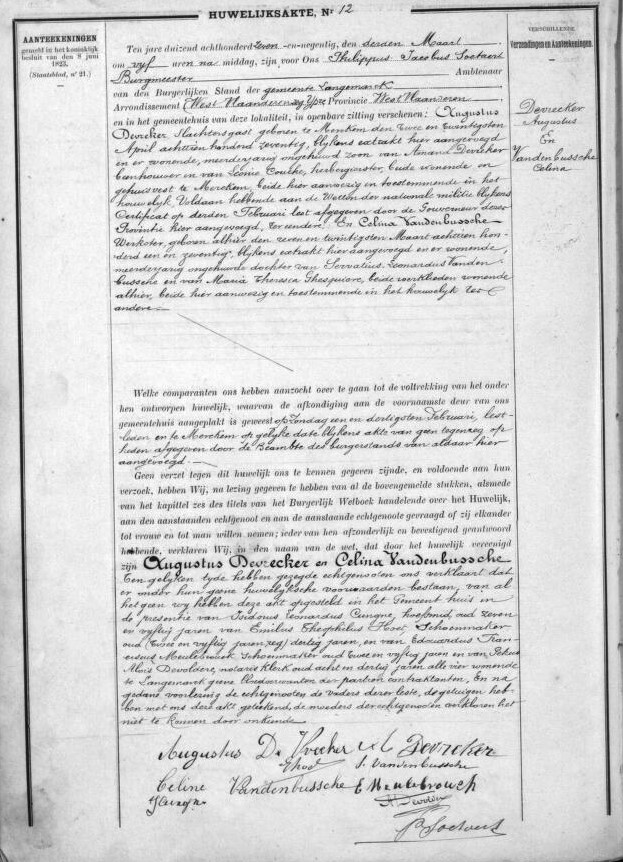 HUWELIJKSAKTE, Nr 12
AANTEEKENINGEN
gemeld in het koninklijk
besluit van den 8 juni
1823.
(Staatsblad, nr 21.)
VERSCHILLENDE
Verzendingen en Aanteekeningen.
Devrecker
Augustus
En
Vandenbussche
Celina
Ten jare duizend achthonderd zeven-en-negentig, den derden Maart
om vyf uren na middag, zijn voor Ons Philippus Jacobus Soetaert
Burgmeester Ambtenaar
van den Burgerlijken Stand der gemeente Langemarck
Arrondissement Provincie West Vlaanderen
en in het gemeentehuis van deze lokaliteit, in openbare zitting verschenen: Augustus
Devreker Slachtersgast geboren te Merckem den twee en twintigsten
April achttien honderd zeventig, blykens extrakt hier aangevoegd
en er wonende, meerderjarig ongehuwd zoon van Amand Devreker
en van Leonie herbergierster beide wonende en
gehuisvest te Merckem, beide hier aanwezig en toestemmende in het
houwelyk Voldaan hebbende aan de Wetten der nationale militie blykens
Certificaet op derden Februari lest afgegeven door de Gouverneur dezer
Provintie hier aangevoegd, ter eendere; En Celina Vandenbussche
Werkster, geboren alhier den zeven en twintigsten Maart achttien hon-
derd een en zeventig, blykens extrakt hier aangevoegd en er wonende,
meerderjarig ongehuwde dochter van Servatius Leonardus Vanden-
bussche en van Maria Theresia Ghesquiere, beide werklieden wonende
alhier, beide hier aanwezig en toestemmende in het houwelyk ter
andere
Welke comparanten ons hebben aanzocht over te gaan tot de voltrekking van het onder
hen ontworpen huwelijk, waarvan de afkondiging aan de voornaamste deur van ons
gemeentehuis aangeplakt is geweest op Zondag een en dertigsten Februari, lest-
leden en te Merckem op gelyke date blykens akte van geen tegenzeg op
heden afgegeven door de Beambte des burgerstands van aldaar hier
aangevoegd.
Geen verzet tegen dit huwelijk ons te kennen gegeven zijnde, en voldoende aan hun
verzoek, hebben Wij, na lezing gegeven te hebben van al de bovengemelde stukken, alsmede
van het kapittel zes des titels van het Burgerlijk Wetboek handelende over het Huwelijk,
aan den aanstaanden echtgenoot en aan de aanstaande echtgenoote gevraagd of zij elkander
tot vrouw en tot man willen nemen; ieder van hen afzonderlijk en bevestigend geantwoord
hebbende, verklaren Wij, in den naam van de wet, dat door het huwelijk vereenigd
zijn Augustus Devrecker en Celina Vandenbussche
Een gelyken tyde hebben gezegde echtgenooten ons verklaart dat
er onder hun geene huwelyksche voorwaarden bestaan, van al
het geen wy hebben deze akt opgesteld in het Gemeent huis in
de presentie van Isidorus Leonardus hoefsmid, oud zeven
en vyftig jaren van Emilius Theophilus Schoenmaker
oud dertig jaren, en van Edouardus Fran-
ciscus Meulebrouck Schoenmaker oud twee en vyftig jaren en van Petrus
Alois Devoldere, notaris klerk oud acht en dertig jaren, alle vier wonende
te Langemarck geene bloedverwanten der partien contraktanten, En na
gedane voorlezing de echtgenooten de vaders dezer leste, de getuigen heb-
ben met ons deze akt geteekend, de moeders der echtgenooten verklaren het
niet te konnen door onkunde
Augustus De Vreeker Devreker
S. Vandenbussche
Celine Vandenbussche E Meulebrouck
P. Soetaert